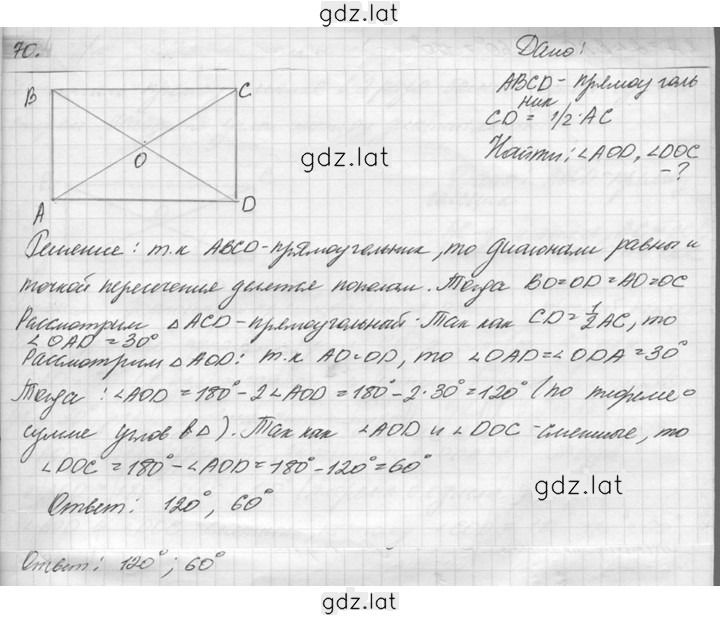 gdz.lat
70.
Дано:
ABCD - прямоуголь
ник
CD = 1/2 · AC
Найти: ∠AOD, ∠DOC
- ?
B
C
O
A
D
gdz.lat
Решение: т.к ABCD - прямоугольник, то диагонали равны и
точкой пересечения делятся пополам. Тогда BO=OD=AO=OC
Рассмотрим △ACD - прямоугольный. Так как CD = 1/2 AC, то
∠OAD = 30°
Рассмотрим △AOD: т.к AO=OD, то ∠OAD=∠ODA=30°
Тогда: ∠AOD = 180° - 2∠AOD = 180° - 2·30° = 120° (по теореме о
сумме углов в △). Так как ∠AOD и ∠DOC - смежные, то
∠DOC = 180° - ∠AOD = 180° - 120° = 60°
Ответ: 120°, 60°
gdz.lat
Ответ: 120°; 60°
gdz.lat